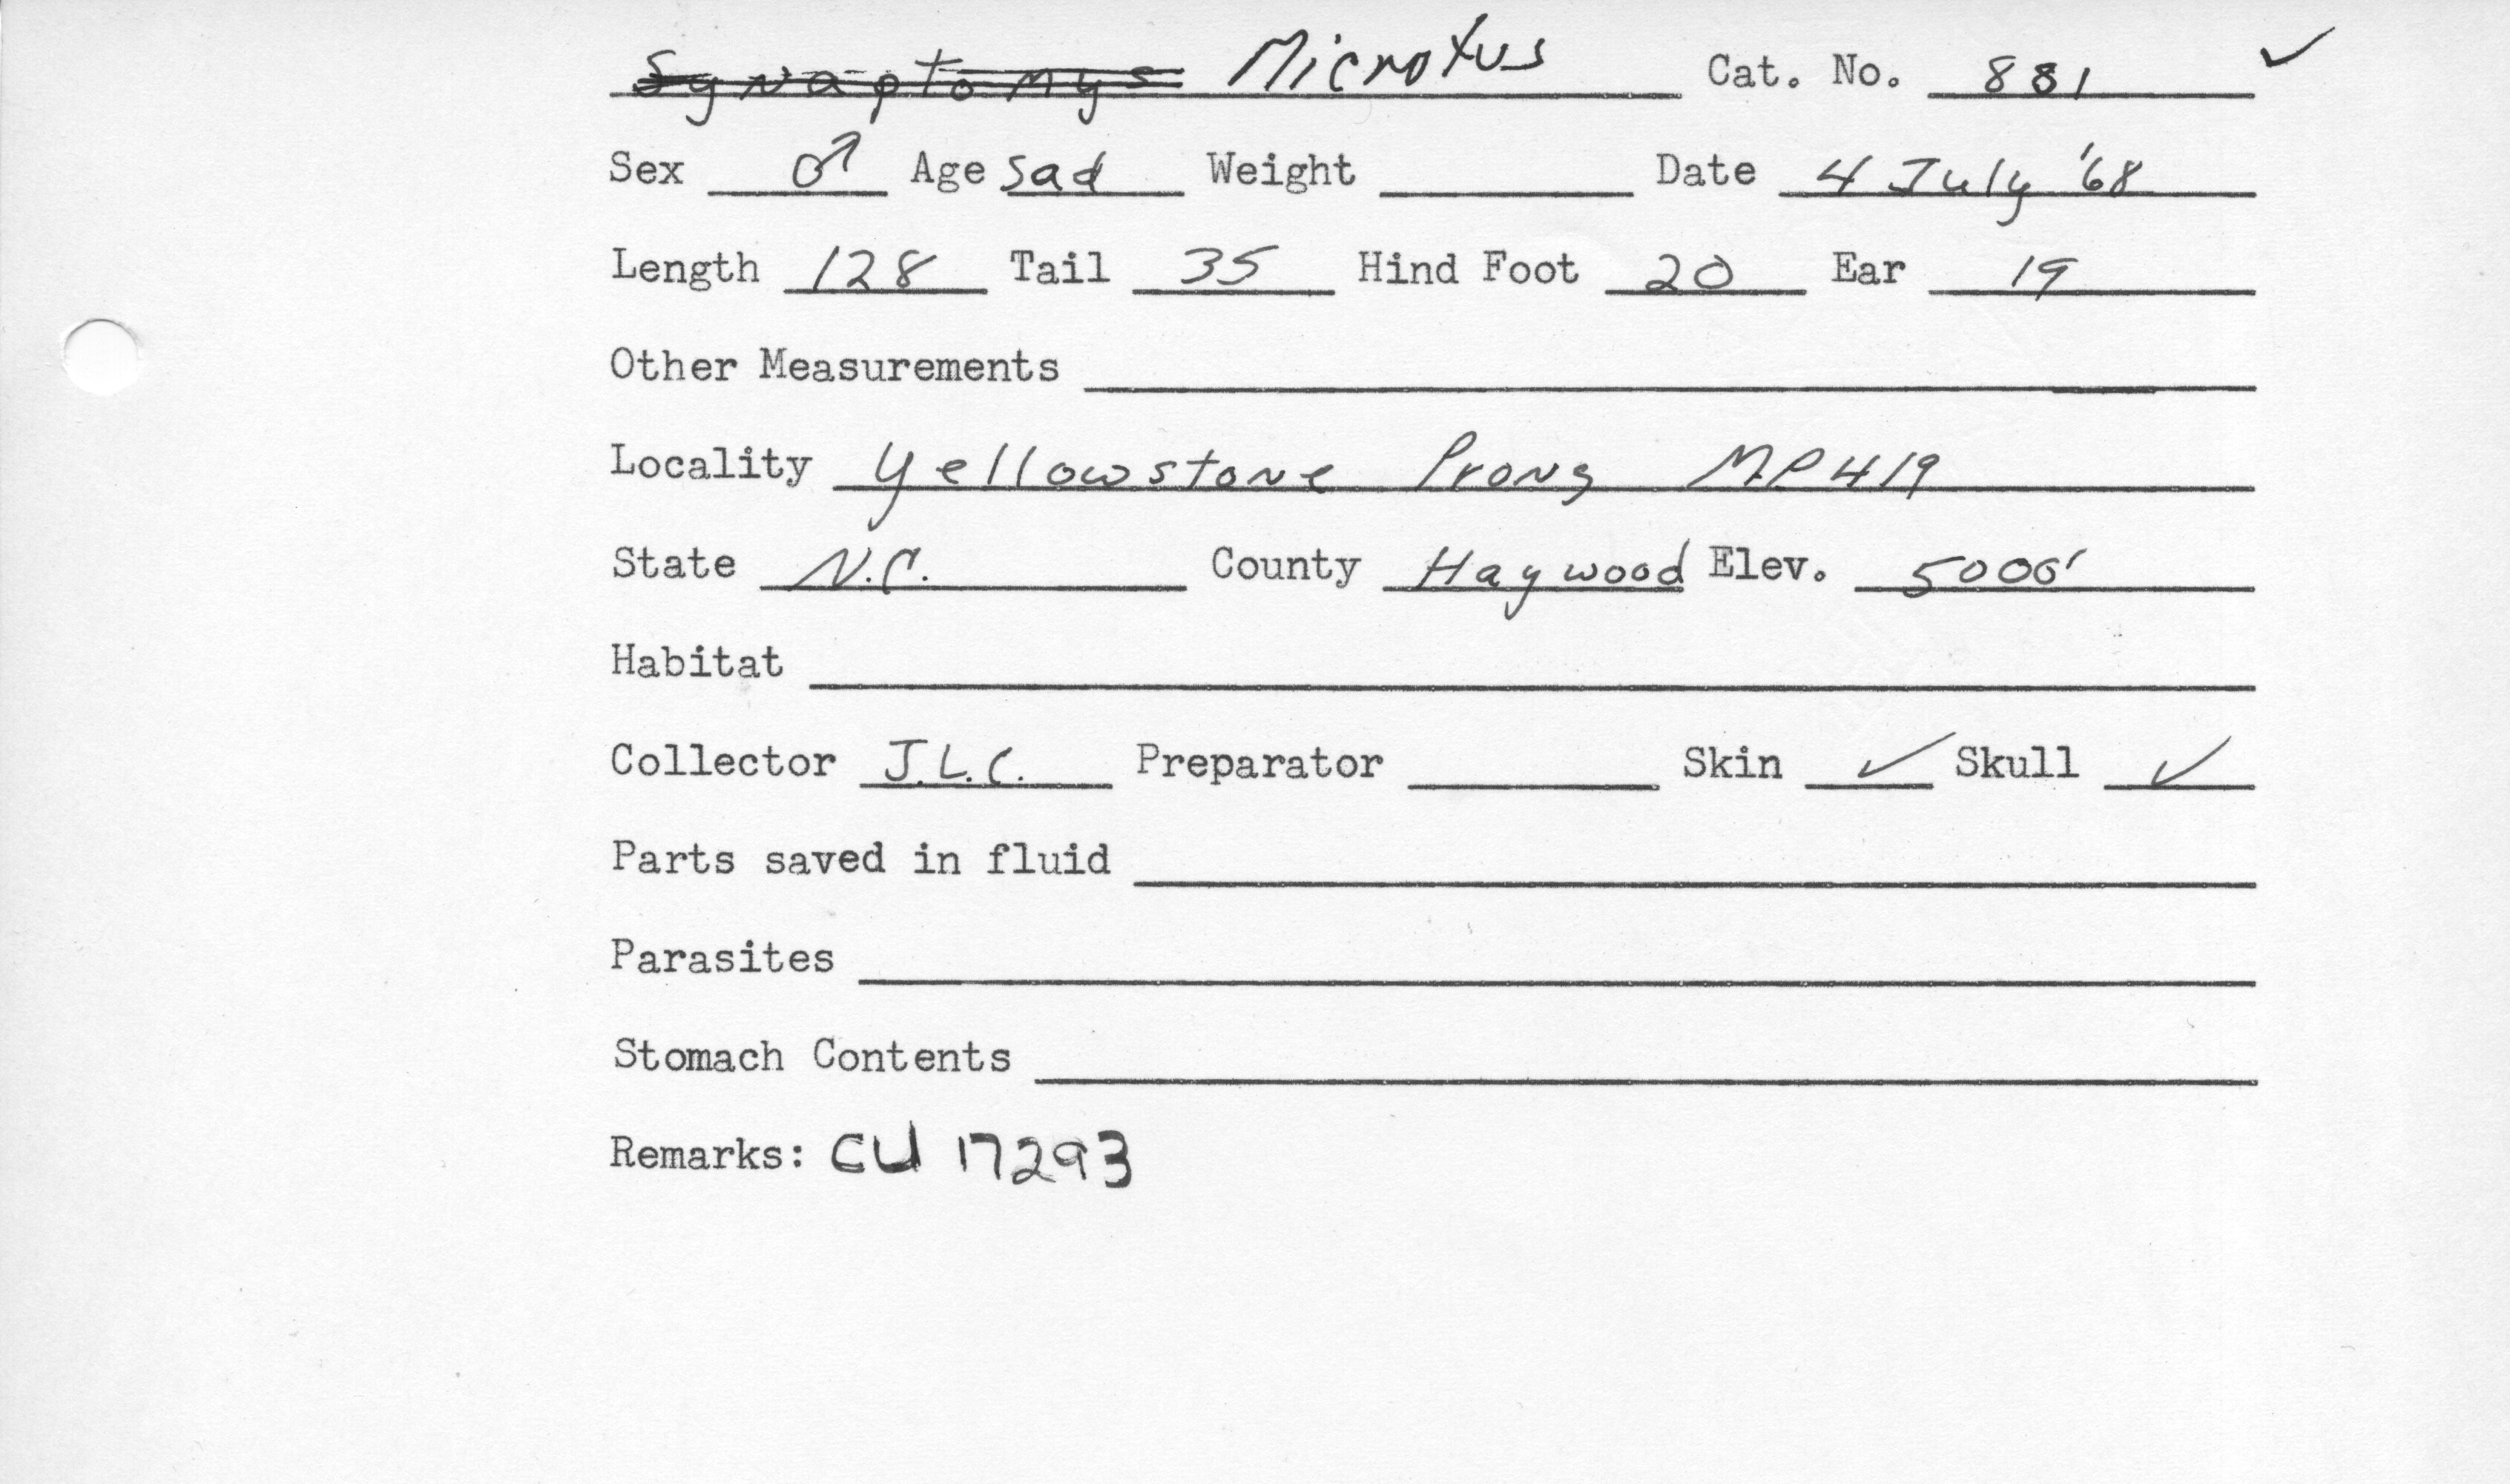 Synaptomys Microtus Cat. No. 881 ✓
Sex ♂ Age sad Weight Date 4 July '68
Length 128 Tail 35 Hind Foot 20 Ear 19
Other Measurements
Locality Yellowstone Prong MP419
State N.C. County Haywood Elev. 5000'
Habitat
Collector J.L.C. Preparator Skin ✓ Skull ✓
Parts saved in fluid
Parasites
Stomach Contents
Remarks: CU 17293